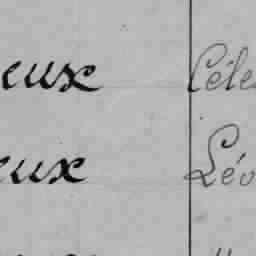 eux Céle
eux Léo